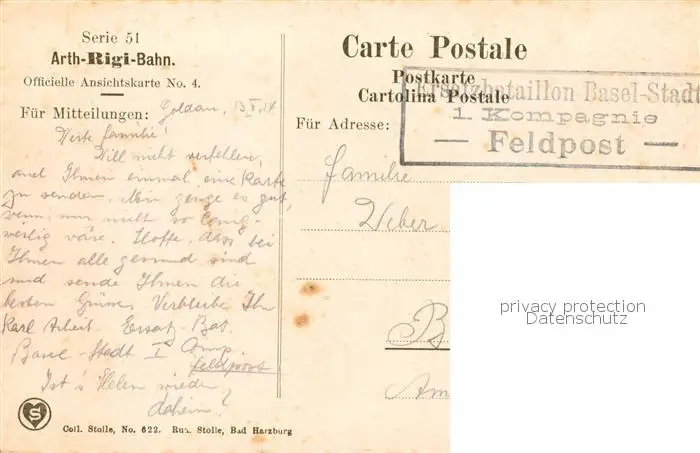 Serie 51
Arth-Rigi-Bahn.
Officielle Ansichtskarte No. 4.
Für Mitteilungen: Goldau,
Werte Familie!
Will nicht verfehlen,
auch Ihnen einmal eine Karte
zu senden. Mir ginge es gut,
wenn nur nicht so lang-
weilig wäre. Hoffe, dass bei
Ihnen alle gesund sind
und sende Ihnen die
besten Grüsse. Verbleibe Ihr
Karl Ersatz-Bat.
Basel-Stadt I Comp.
Feldpost
Ist's Helen wieder
daheim?
S
Coll. Stolle, No. 622. Stolle, Bad Harzburg
Carte Postale
Postkarte
Cartolina Postale
Für Adresse:
Ersatzbataillon Basel-Stadt
1. Kompagnie
— Feldpost —
Familie
Weber
B
Am
privacy protection
Datenschutz